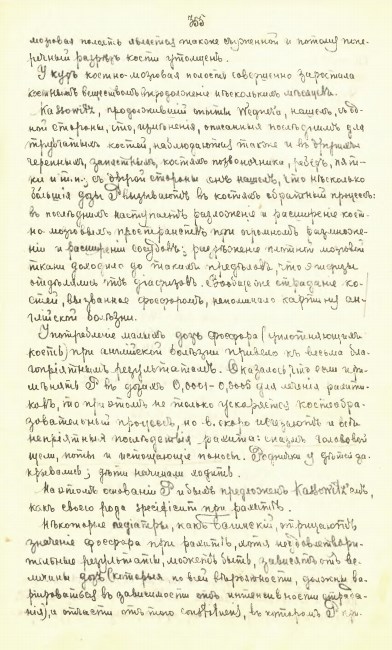 355
мозговая полость является также суженной и потому попе-
речный разрѣзъ кости утолщенъ.
У куръ костно-мозговая полость совершенно заростала
костнымъ веществомъ въ продолженіе нѣсколькихъ мѣсяцевъ.
Kassowitz, продолжившій опыты Wegner'а, нашелъ, съ од-
ной стороны, что, измѣненія, описанныя послѣднимъ для
трубчатыхъ костей, наблюдаются также и въ другихъ:
черепныхъ, запястныхъ, костяхъ позвоночника, реберъ, пят-
ки и т.п.; съ другой стороны онъ нашелъ, что нѣсколько
бо́льшія дозы P вызываютъ въ костяхъ обратный процессъ:
въ послѣднихъ наступаетъ разложеніе и расширеніе кост-
но-мозговыхъ пространствъ при огромномъ размноже-
ніи и расширеніи сосудовъ; разрѣженіе костной мозговой
ткани доходило до такихъ предѣловъ, что эпифизы
отдѣлялись отъ діафизовъ. Сообщаетъ страданіе ко-
стей, вызванное фосфоромъ, напоминало картину ан-
глійской болѣзни.
Употребленіе малыхъ дозъ фосфора (уплотняющихъ
кость) при англійской болѣзни привело къ весьма бла-
гопріятнымъ результатамъ. Оказалось, что если при-
мѣнять P въ дозахъ 0,0001-0,0005 для лѣченія рахити-
ковъ, то при этомъ не только ускоряется костеобра-
зовательный процессъ, но-в. скоро исчезаютъ и всѣ
непріятныя послѣдствія рахита: спазмъ голововой
щели, поты и истощающіе поносы. Роднички у дѣтей за-
крывались; дѣти начинали ходить.
На этомъ основаніи P и былъ предложенъ Kassowitz'омъ,
какъ своего рода specificum при рахитѣ.
Нѣкоторые педіатры, какъ Багинскій, отрицаютъ
значеніе фосфора при рахитѣ, хотя неудовлетвори-
тельные результаты, можетъ быть, зависятъ отъ ве-
личины дозъ (которыя по всей вѣроятности, должны ва-
рьироваться въ зависимости отъ интенсивности страда-
нія), и отчасти отъ того constituens, въ которомъ P при-